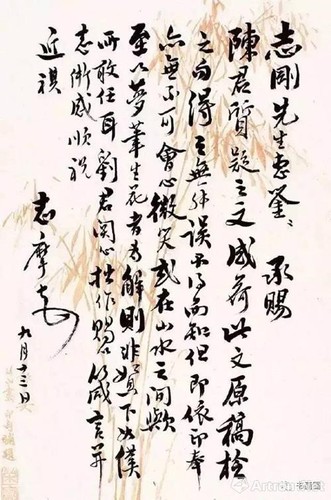 志剛先生惠鑒、承賜
陳君質疑之文感荷此文原稿檢
之得之無誤不得而知但即依印奉
亦無不可會心微笑或在山水之間歟
至以夢筆生花者為解則非下如僕
所敢任耳劉君関心拙作賜以箴言并
志銜感順祝
近祺
志摩
九月十三日